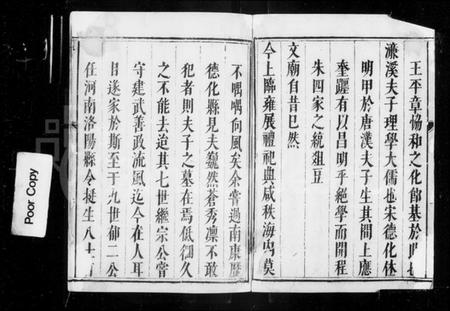 王平章愓和之化節基於此也
濂溪夫子理學大儒也宋德化休
明甲於唐漢夫子生其間上應
奎躔有以昌明乎絕學而開程
朱四家之統俎豆
文廟自昔已然
今上臨雍展禮祀典咸秩海內莫
不喁喁向風矣余嘗過南康歷
德化縣見夫巍然蒼秀凛不敢
犯者則夫子之墓在焉低徊久
之不能去迨其七世繼宗公嘗
守建武善政流風迄今在人耳
目遂家於斯至于九世郁二公
任河南洛陽縣令挺生八十
Poor Copy